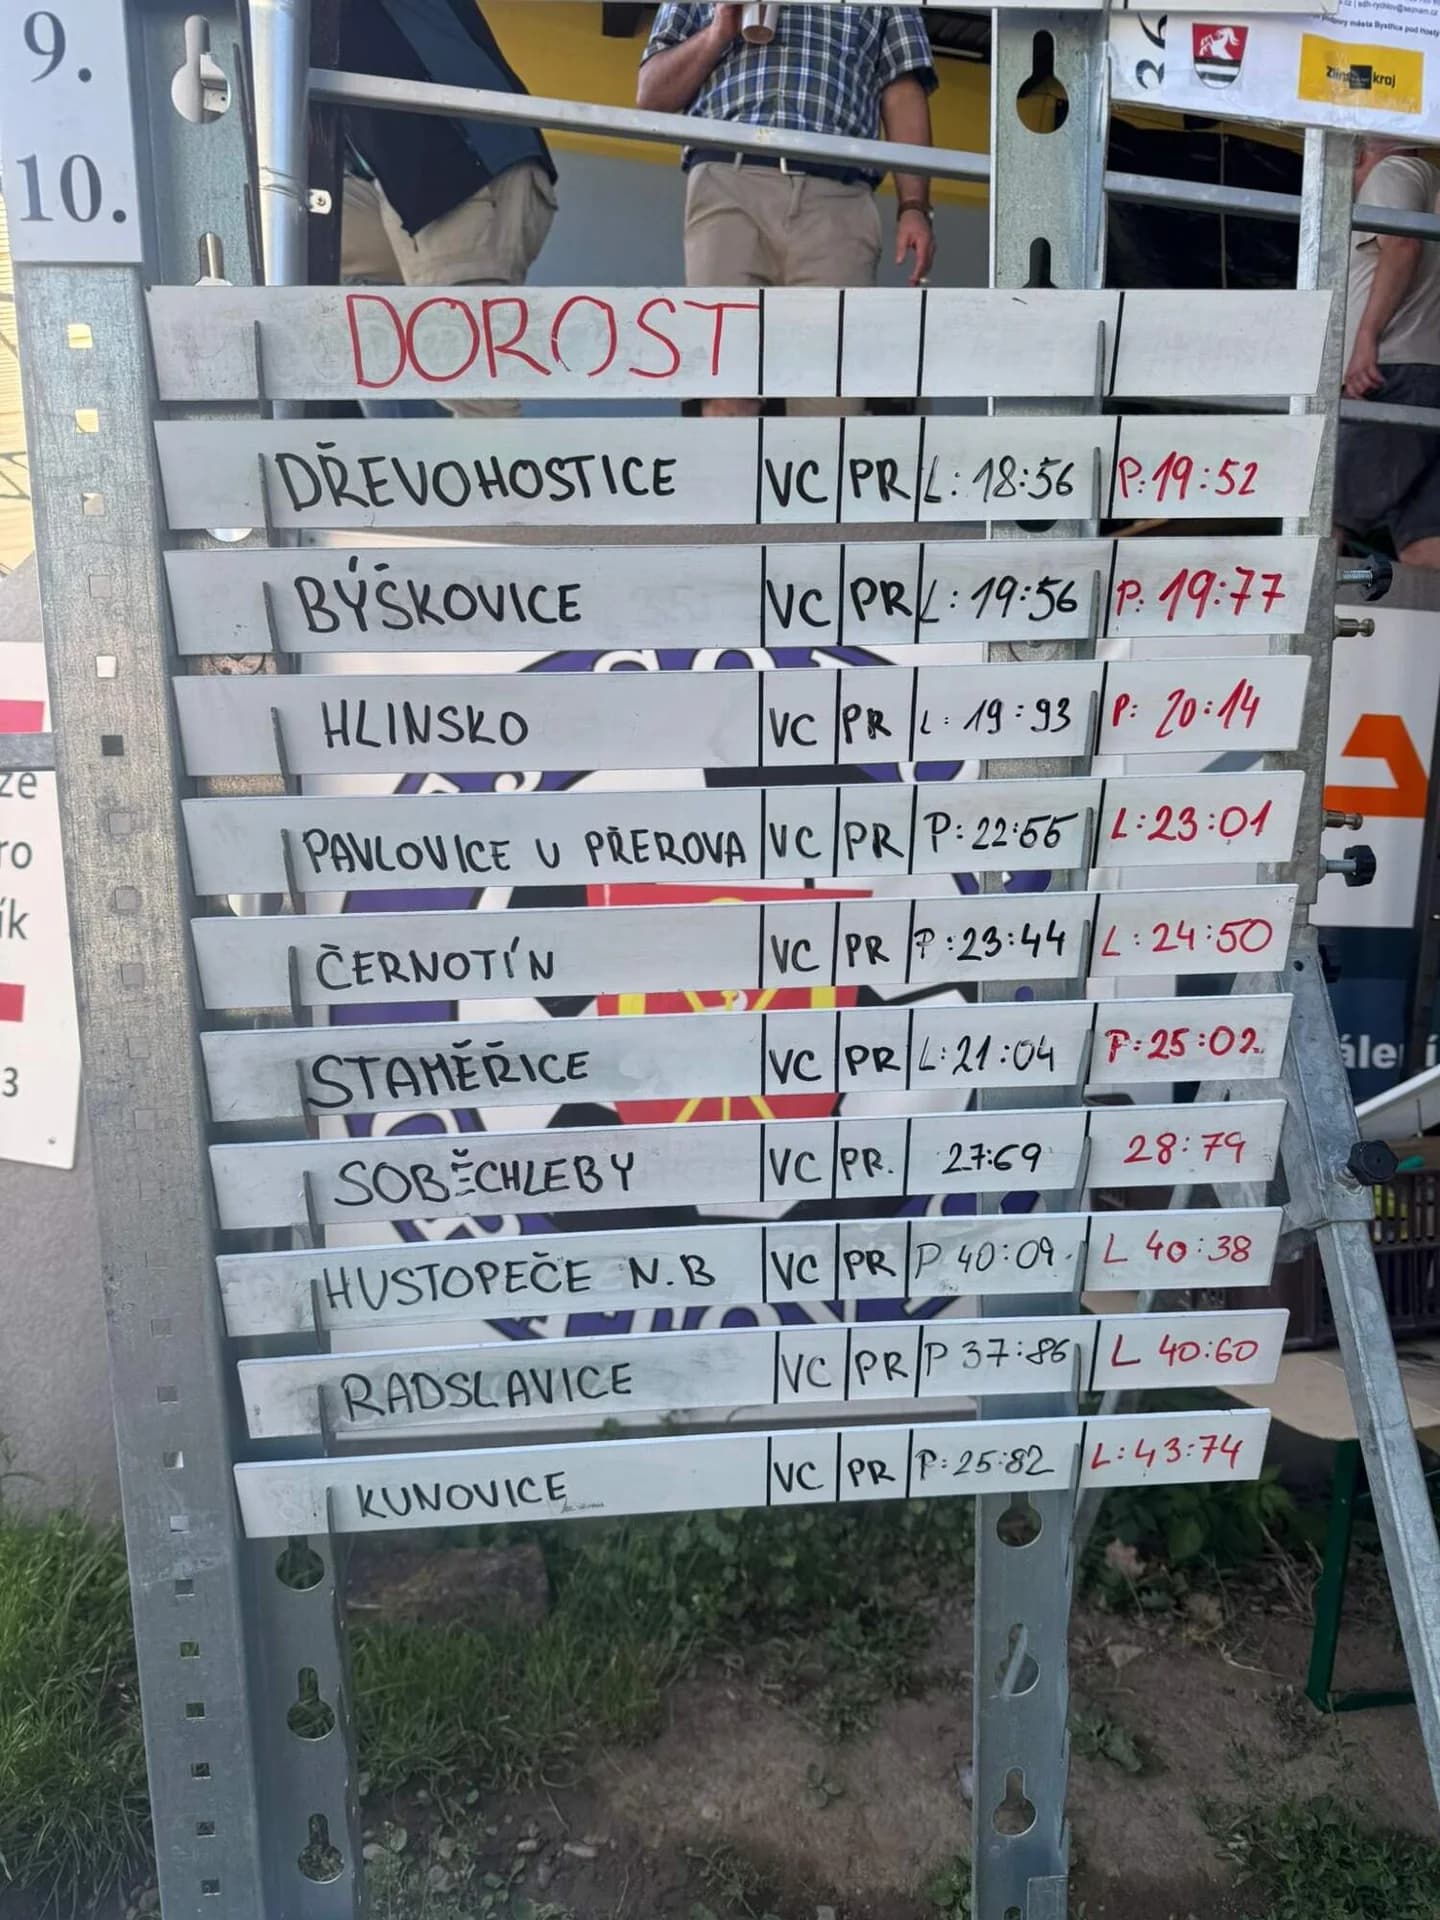 9.
10.
26
Zlínský kraj
DOROST
DŘEVOHOSTICE VC PR L: 18:56 P: 19:52
BÝŠKOVICE VC PR L: 19:56 P: 19:77
HLINSKO VC PR L: 19:93 P: 20:14
PAVLOVICE U PŘEROVA VC PR P: 22:55 L: 23:01
ČERNOTÍN VC PR P: 23:44 L: 24:50
STAMĚŘICE VC PR L: 21:04 P: 25:02
SOBĚCHLEBY VC PR. 27:69 28:79
HUSTOPEČE N.B VC PR P 40:09 L 40:38
RADSLAVICE VC PR P 37:86 L 40:60
KUNOVICE VC PR P: 25:82 L: 43:74
ze
ro
ík
3